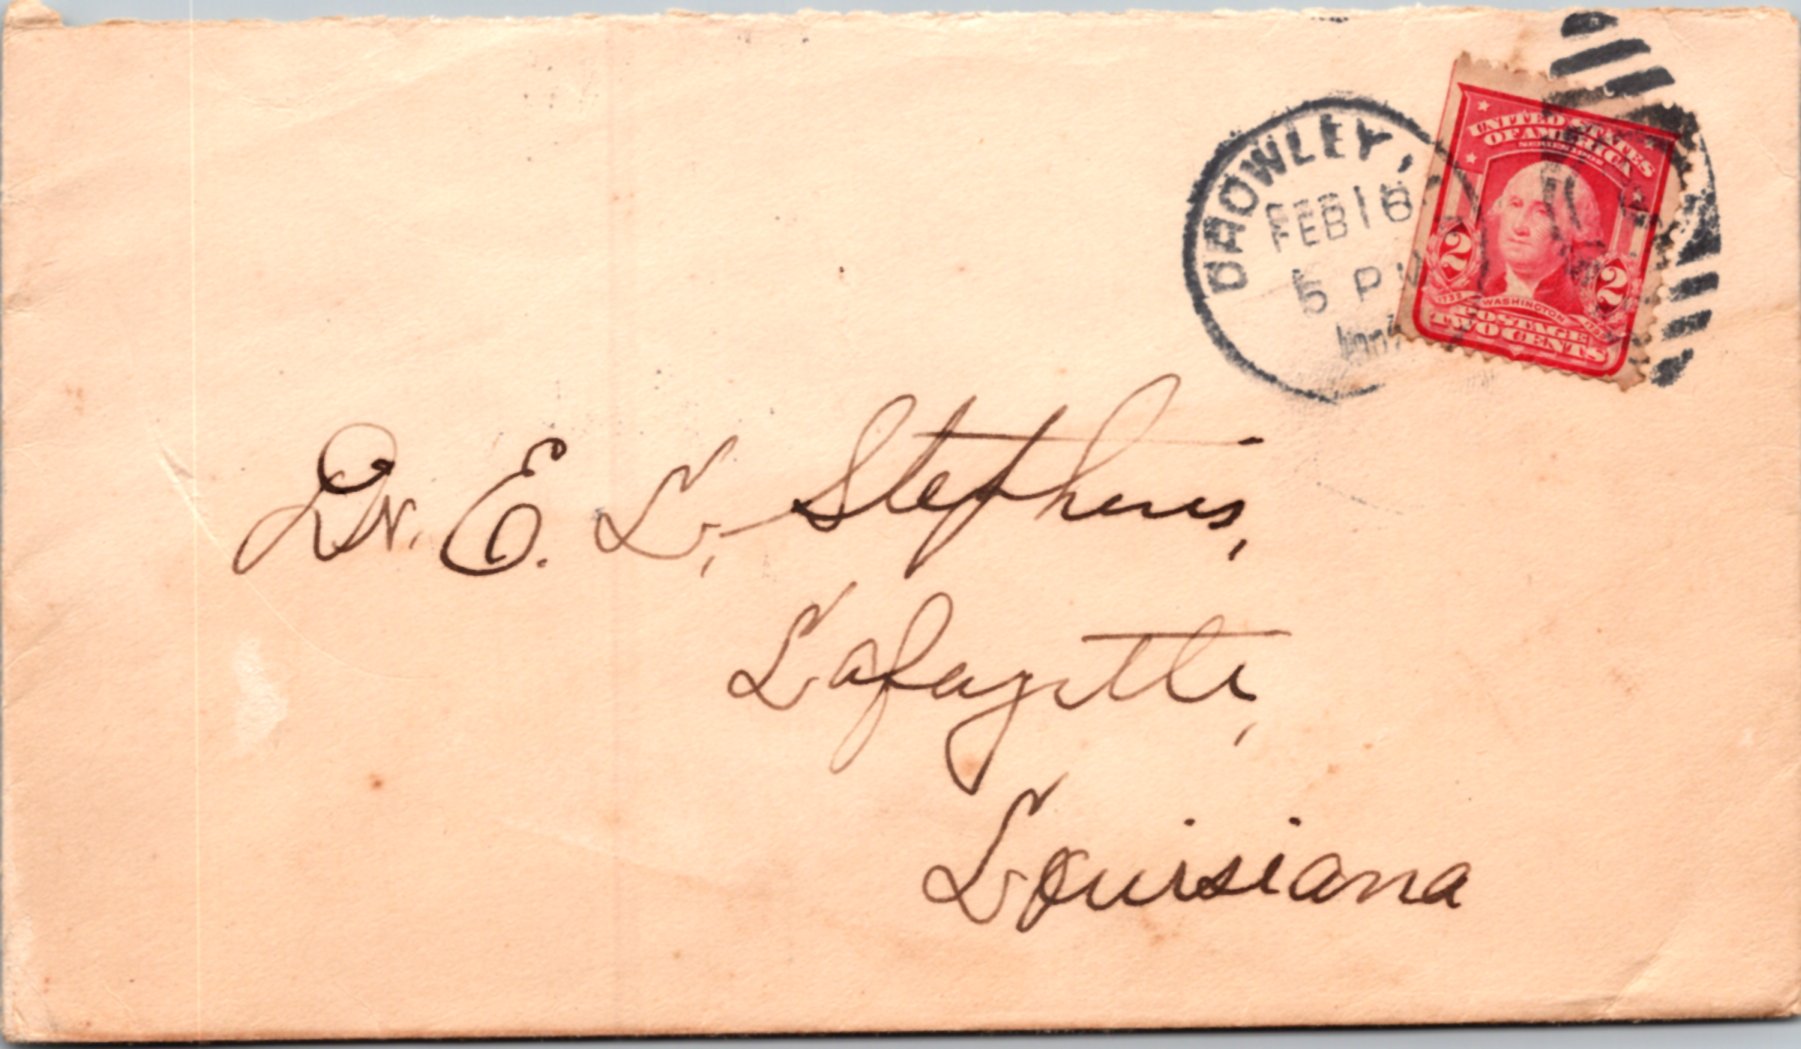 CROWLEY,
FEB 18
5 P M
UNITED STATES
OF AMERICA
2 2
1732 WASHINGTON
POSTAGE
TWO CENTS
Dr. E. L. Stephens,
Lafayette,
Louisiana